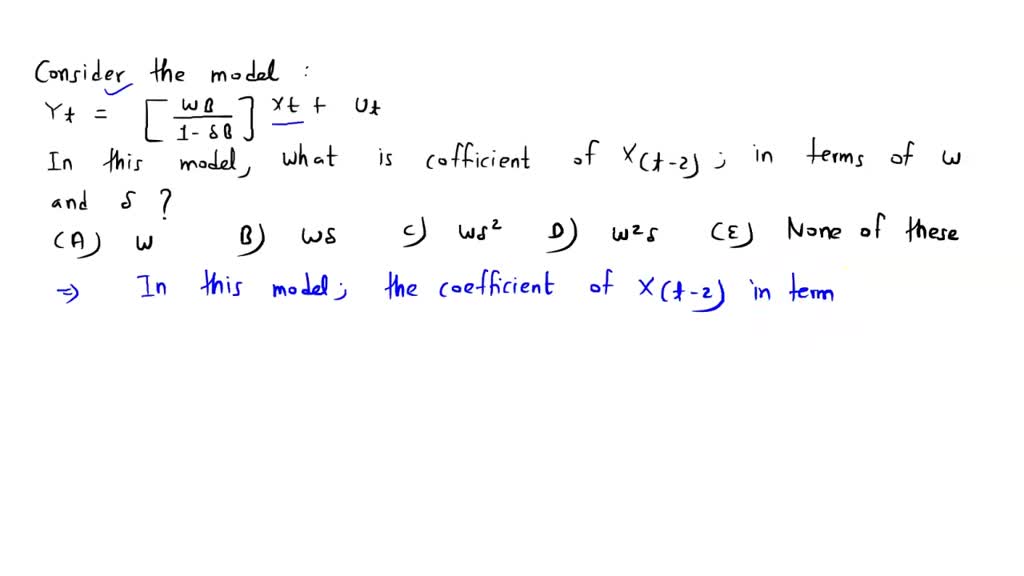 Consider the model :
Yt = [ wB / 1 - δB ] Xt + Ut
In this model, what is cofficient of X(t-2) ; in terms of w
and δ ?
(A) w B) wδ C) wδ² D) w²δ (E) None of these
⇒ In this model; the coefficient of X(t-2) in term